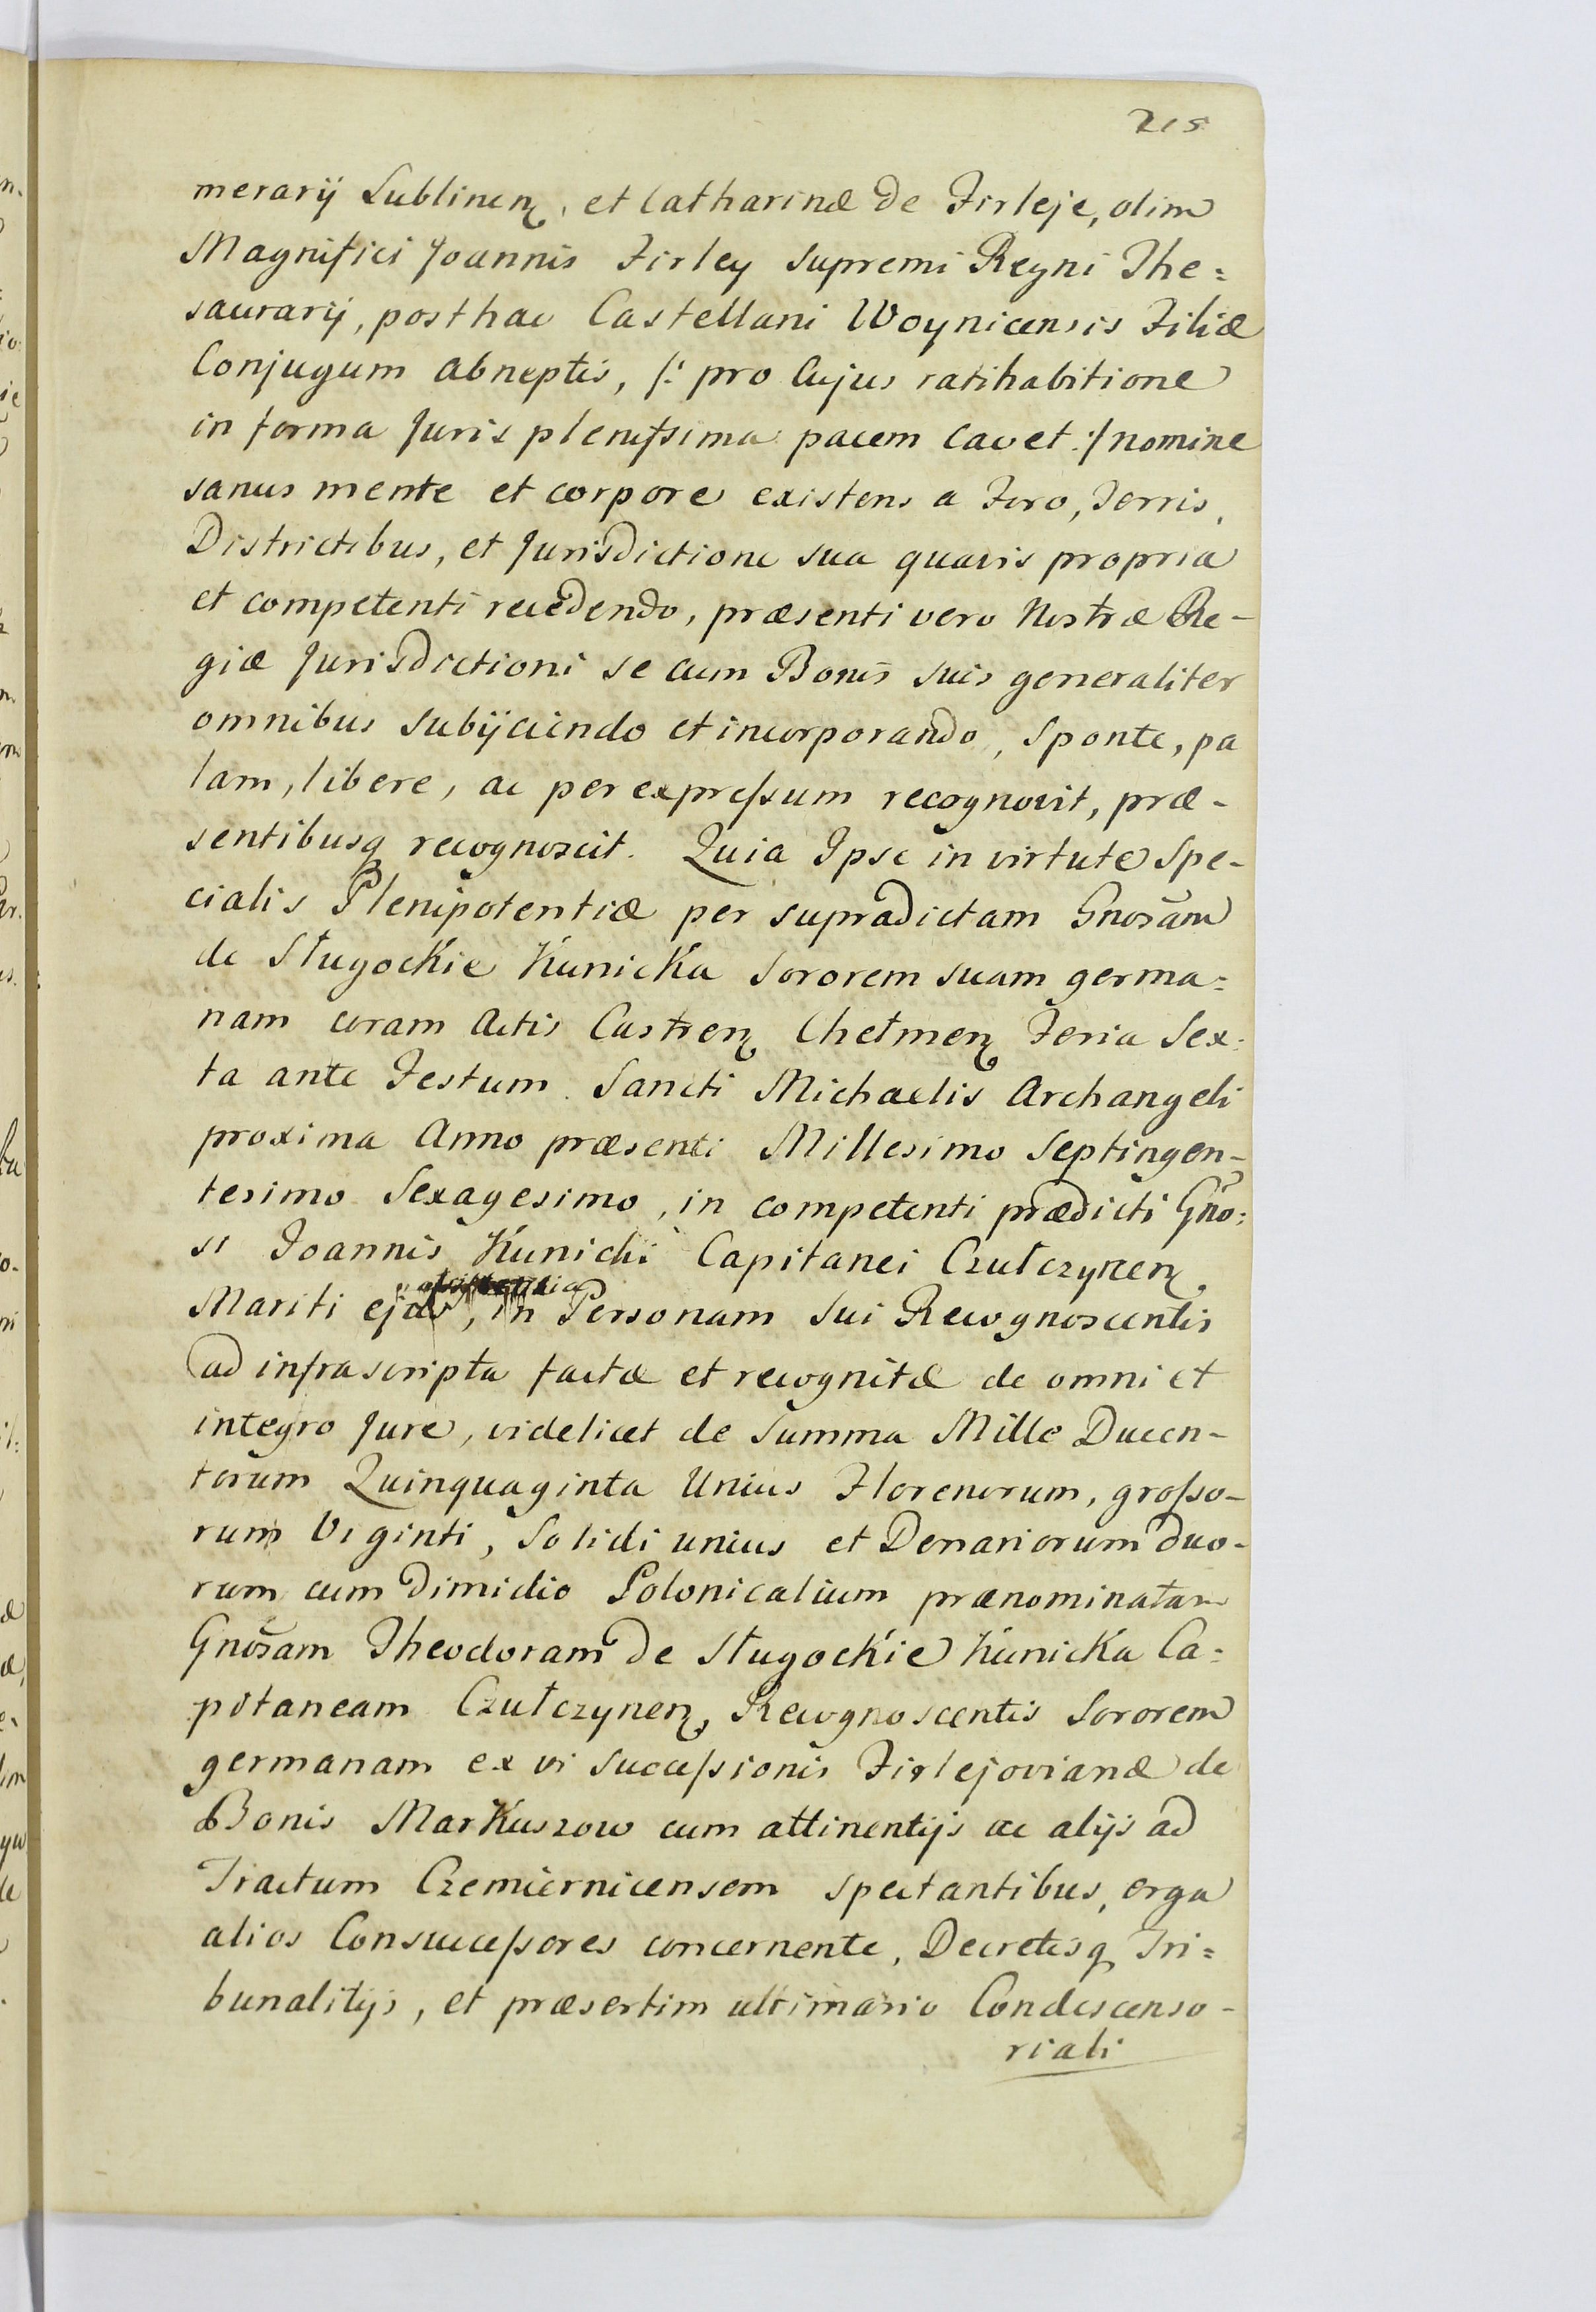 215
merarij Lublinen, et Catharinæ de Firleje, olim
Magnifici Joannis Firley Supremi Regni The=
saurarij, posthac Castellani Woynicensis Filiæ
Conjugum abneptis, /: pro Cujus ratihabitione
in forma Juris plenissima pacem Cavet :/ nomine
sanus mente et corpore existens a Foro, Terris,
Districtibus, et Jurisdictione sua quavis propria
et competenti recedendo, præsenti vero Nostræ Re-
giæ Jurisdictioni se cum Bonis suis generaliter
omnibus subijciendo et incorporando, Sponte, pa
lam, libere, ac per expressum recognovit, præ-
sentibusq recognoscit. Quia Ipse in virtute Spe-
cialis Plenipotentiæ per supradictam Gnosam
de Sługockie Kunicka Sororem suam germa=
nam coram Actis Castren Chełmen Feria Sex=
ta ante Festum Sancti Michaelis Archangeli
proxima Anno præsenti Millesimo Septingen-
tesimo Sexagesimo, in competenti prædicti Gno=
si Joannis Kunicki Capitanei Czułczynen
Mariti ejus, in Personam sui Recognoscentis
ad infrascripta factæ et recognitæ de omni et
integro Jure, videlicet de Summa Mille Ducen-
torum Quinquaginta Unius Florenorum, grosso-
rum Viginti, Solidi unius et Denariorum duo-
rum cum dimidio Polonicalium prænominatam
Gnosam Theodoram de Sługockie Kunicka Ca=
pitaneam Czułczynen, Recognoscentis Sororem
germanam ex vi Successionis Firlejovianæ de
Bonis Markuszow cum attinentijs ac alijs ad
Tractum Czemiernicensem spectantibus, erga
alios Consuccessores concernente, Decretisq Tri=
bunalitijs, et præsertim ultimario Condescenso-
riali